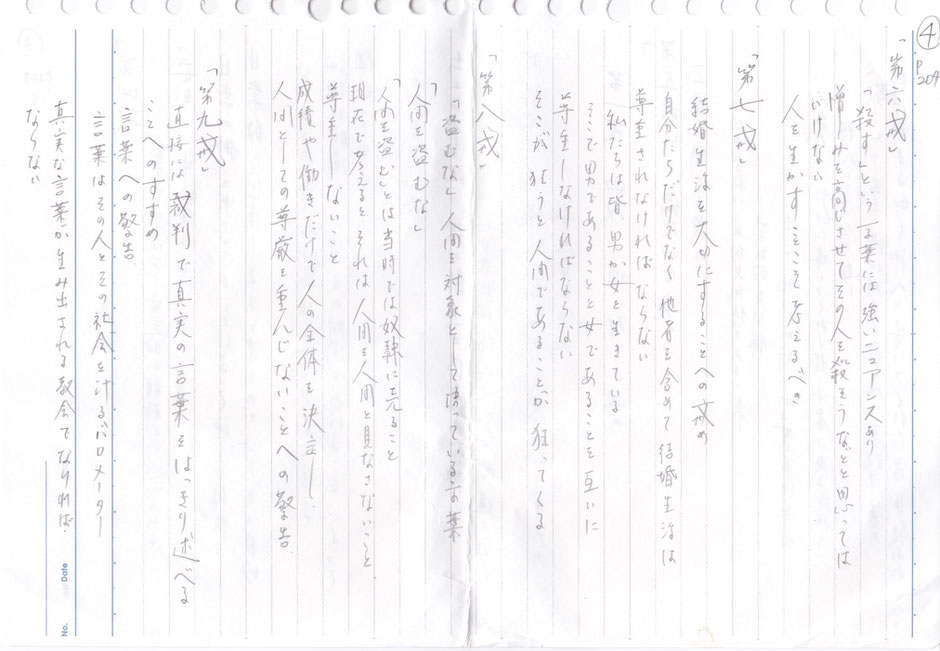 ④
P204
「第六戒」
「殺す」という言葉には強いニュアンスあり
憎しみを高じさせてその人を殺そうなどと思っては
いけない
人を生かすことこそ考えるべき
「第七戒」
結婚生活を大切にすることへの戒め
自分たちだけでなく他者を含めて結婚生活は
尊重されなければならない
私たちは皆男か女を生きている
そこで男であることと女であることを互いに
尊重しなければならない
そこが狂うと人間であることが狂ってくる
「第八戒」
「盗むな」人間を対象として語っている言葉
「人間を盗むな」
「人間を盗む」とは当時では奴隷に売ること
現在で考えるとそれは人間を人間と見なさないこと
尊重しないこと
成績や働きだけで人の全体を決定し
人間としての尊厳を重んじないことへの警告
「第九戒」
直接には裁判で真実の言葉をはっきり述べる
ことへのすすめ
言葉への警告
言葉はその人とその社会を計るバロメーター
真実な言葉が生み出される教会でなければ
ならない
No.
Date